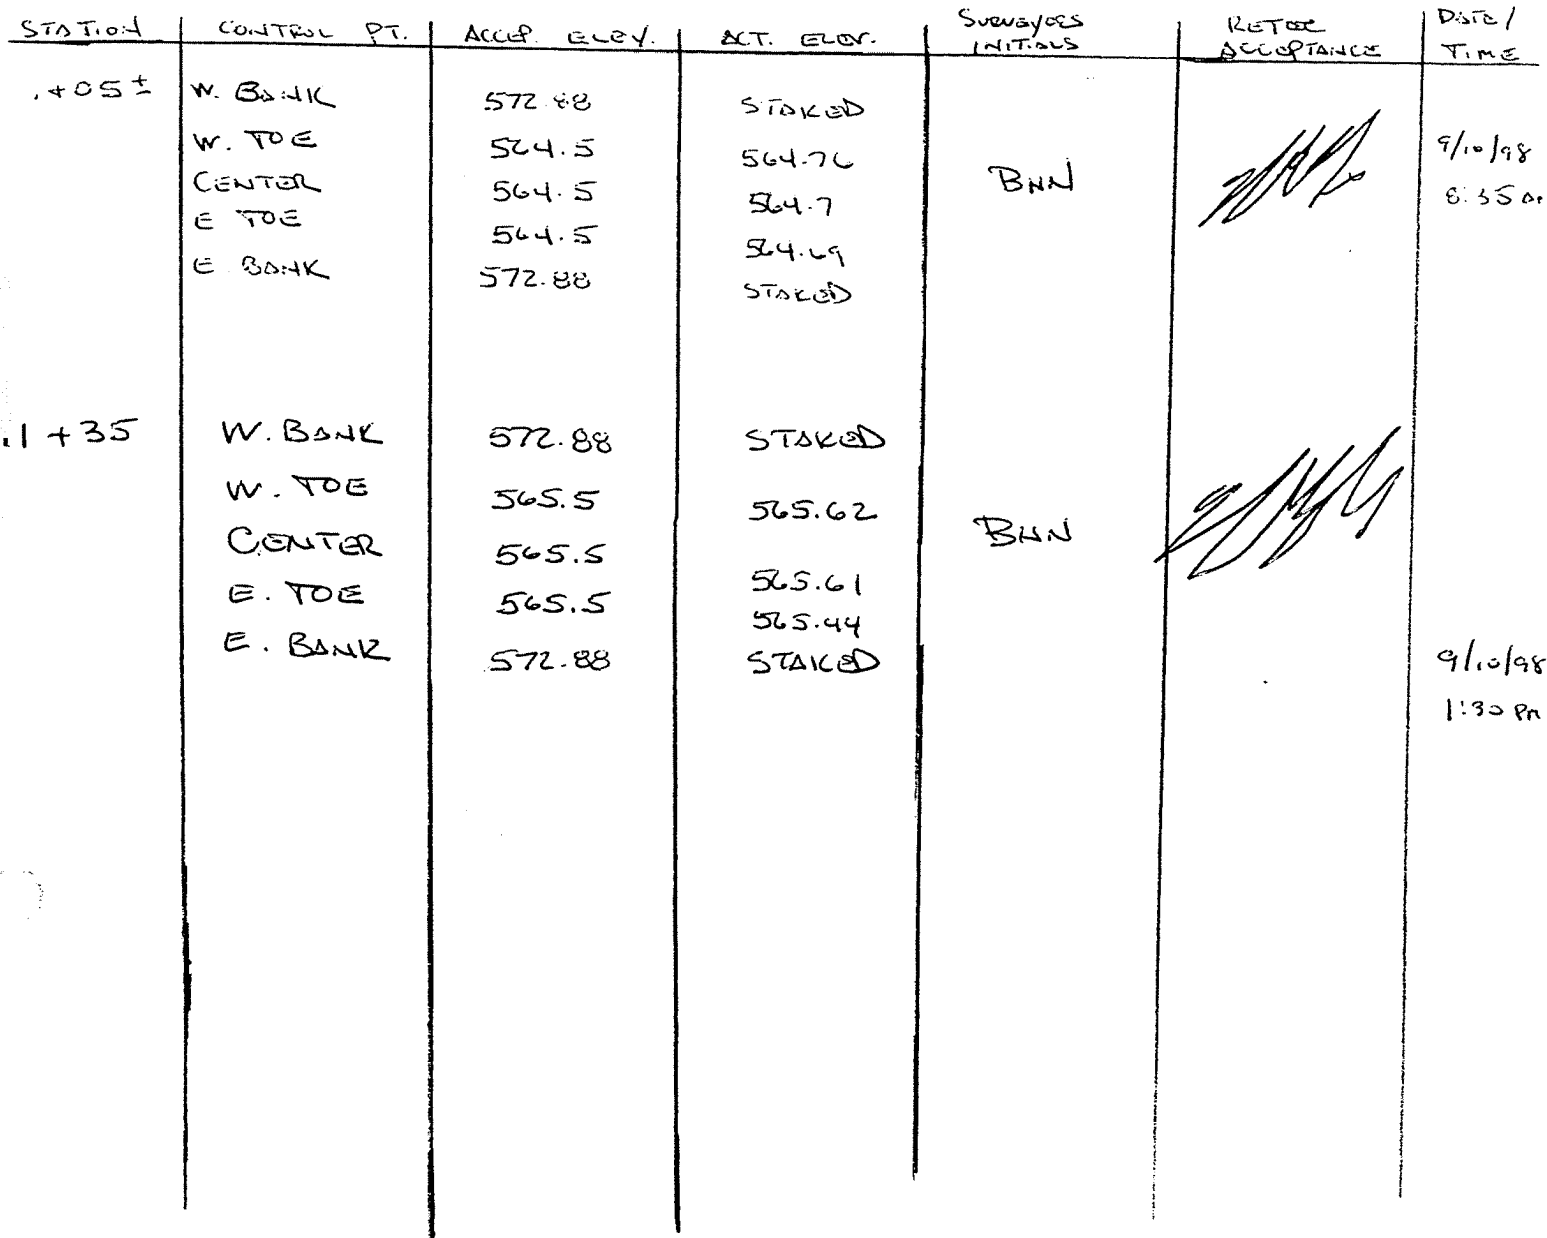 STATION CONTROL PT. ACCEP. ELEV. ACT. ELEV. SURVEYORS INITIALS RETEC ACCEPTANCE DATE/ TIME
.+05± W. BANK 572.88 STAKED
W. TOE 564.5 564.76 9/10/98
CENTER 564.5 564.7 BHN 8:35 AM
E TOE 564.5 564.69
E BANK 572.88 STAKED
.1+35 W. BANK 572.88 STAKED
W. TOE 565.5 565.62
CENTER 565.5 565.61 BHN
E. TOE 565.5 565.44
E. BANK 572.88 STAKED 9/10/98
1:30 PM